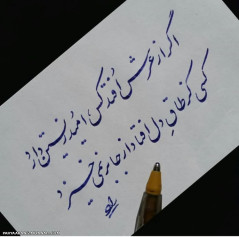 اگر از عرش افتد کس، امید زیستن دارد
کسی کز طاق دل افتاد از جا برنمی خیزد